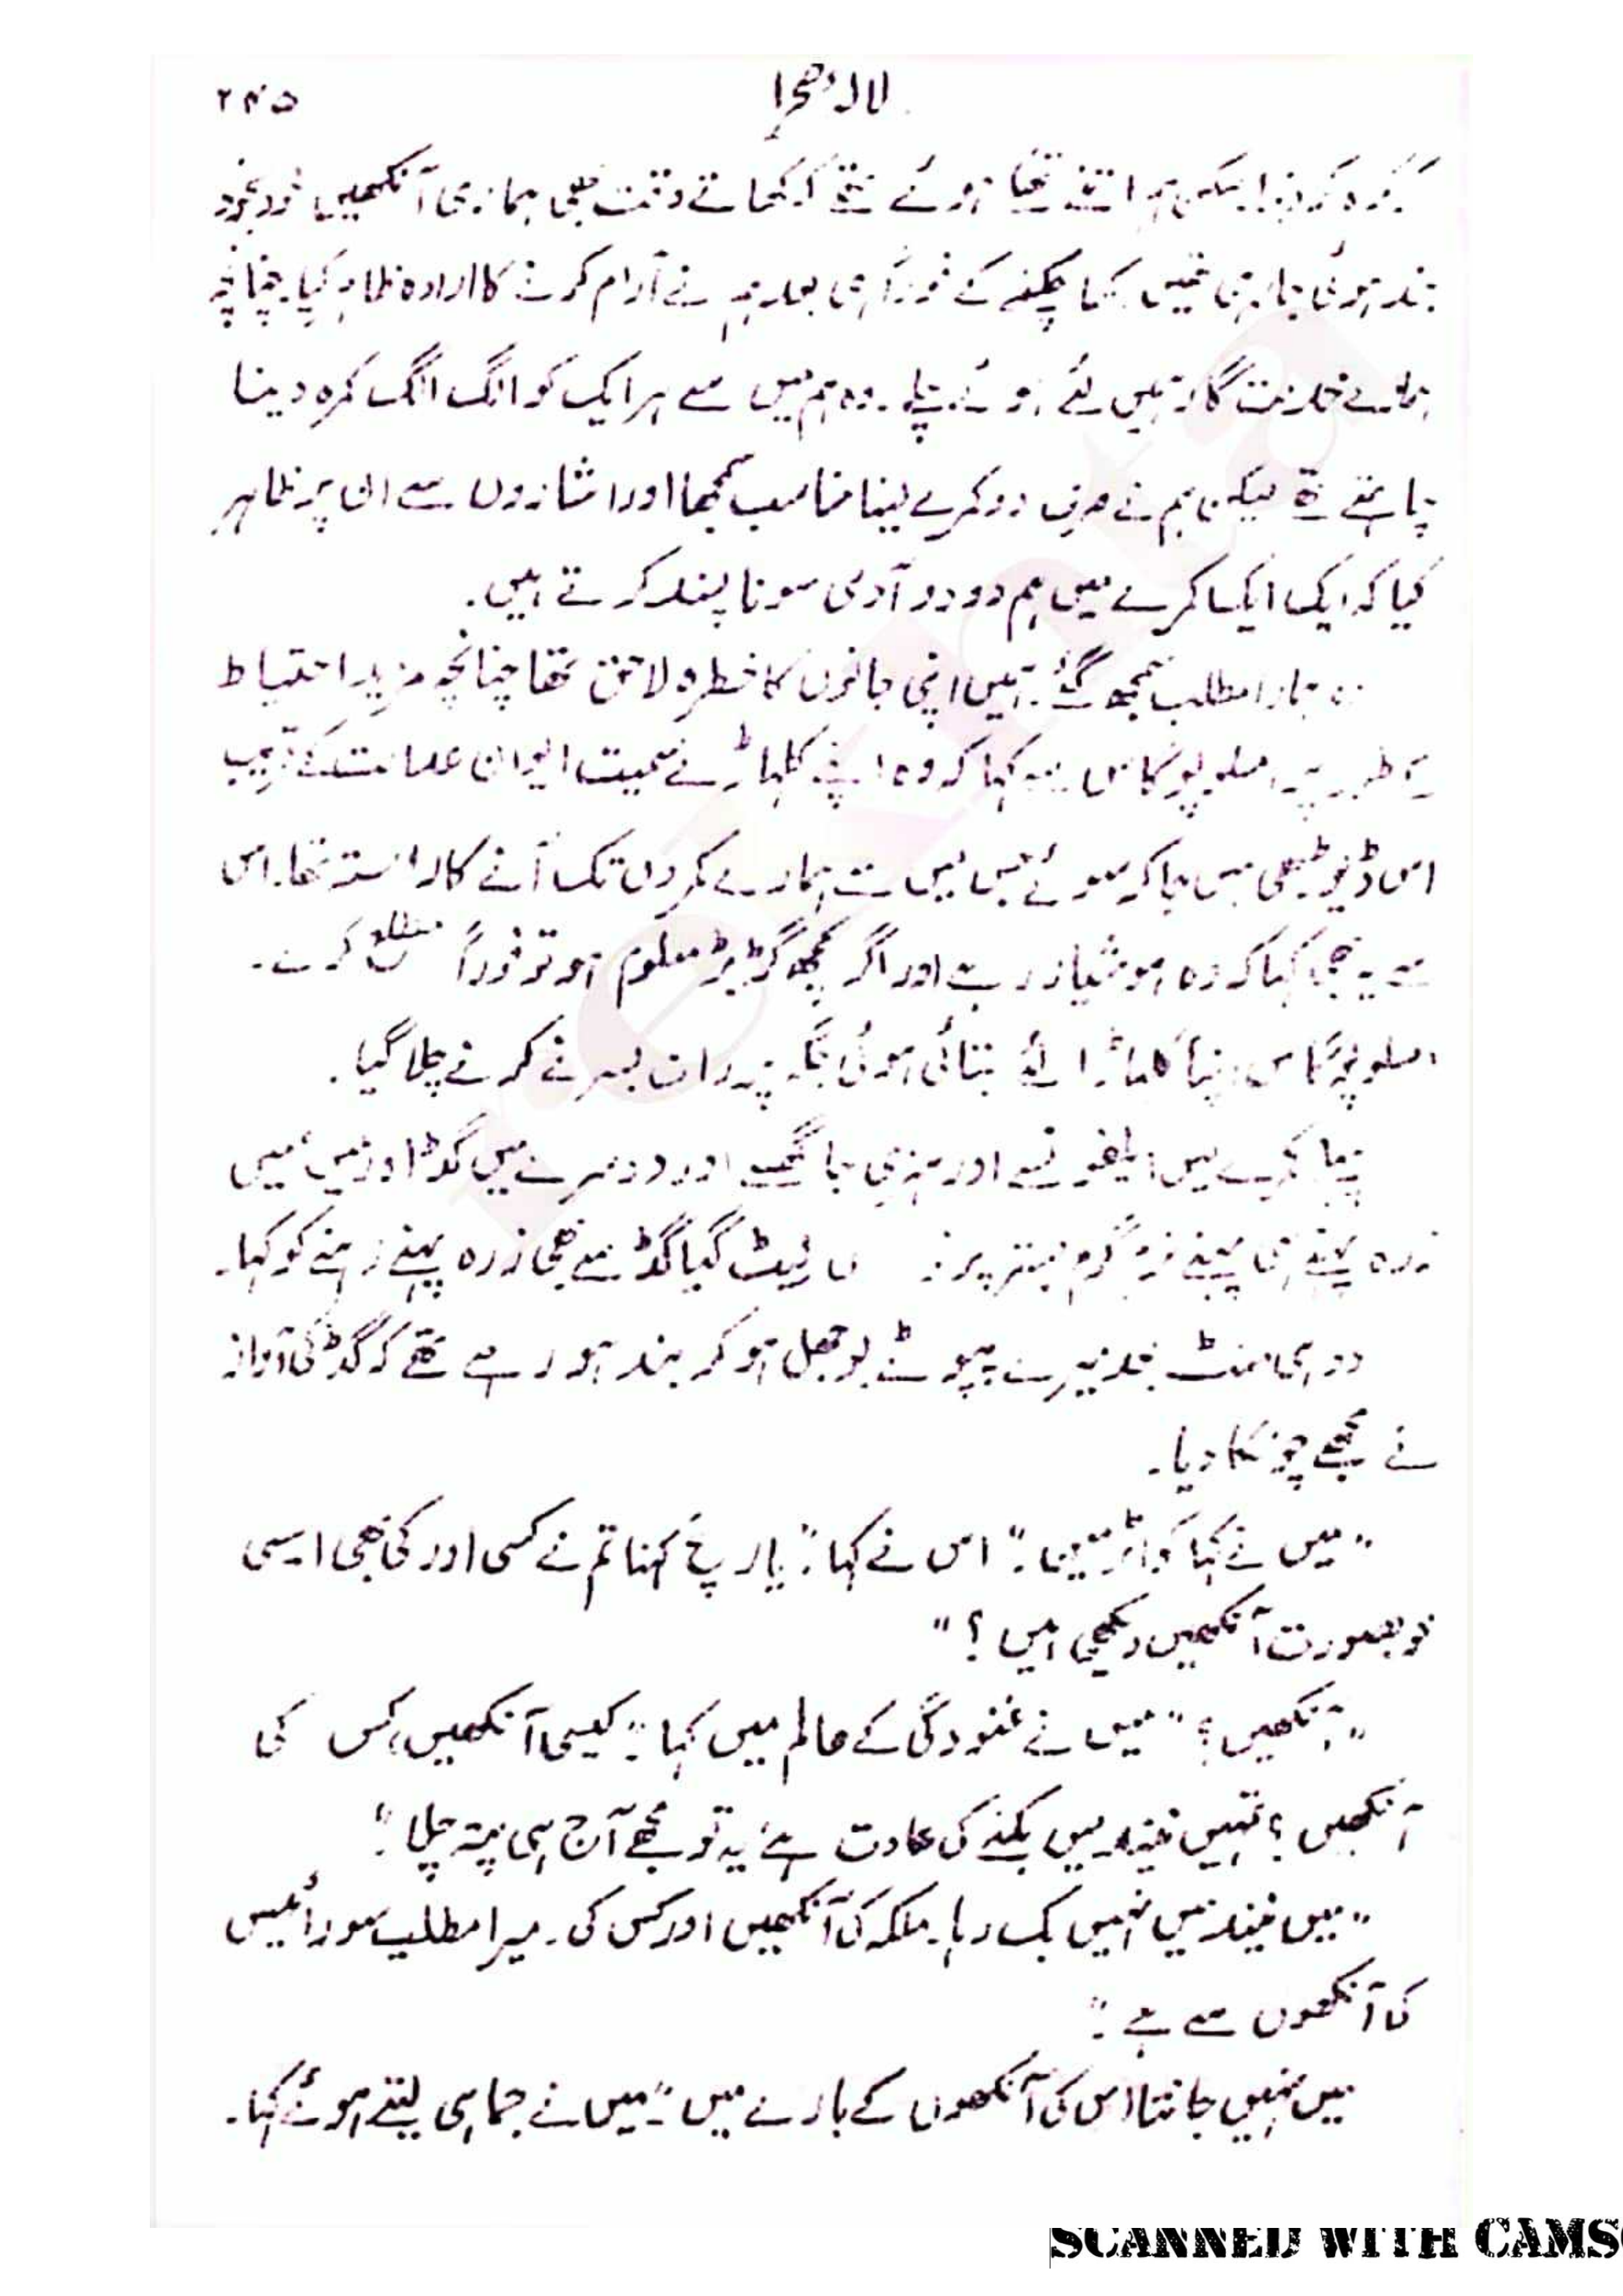 ۲۴۵ لالۂ صحرا
لیکن ہم اتنے تھکے ہوئے تھے کہ کھاتے وقت بھی ہماری آنکھیں خود بخود
بند ہوئی جا رہی تھیں۔ کھا چکنے کے فوراً ہی بعد ہم نے آرام کرنے کا ارادہ ظاہر کیا۔ چنانچہ
ہمارے خدمت گار ہمیں لئے ہوئے چلے۔ وہ ہم میں سے ہر ایک کو الگ الگ کمرہ دینا
چاہتے تھے لیکن ہم نے صرف دو کمرے لینا مناسب سمجھا اور اشاروں سے ان پر ظاہر
کیا کہ ایک ایک کمرے میں ہم دو دو آدمی سونا پسند کرتے ہیں۔
وہ ہمارا مطلب سمجھ گئے۔ ہمیں اپنی جانوں کا خطرہ لاحق تھا چنانچہ مزید احتیاط
کے طور پر املوپوگاس سے کہا کہ وہ اپنے کلہاڑے سمیت ایوان عدالت کے قریب
اس ڈیوڑھی میں جا کر سوئے جس میں سے ہمارے کمروں تک آنے کا راستہ تھا۔ اس
سے یہ بھی کہا کہ وہ ہوشیار رہے اور اگر کچھ گڑبڑ معلوم ہو تو فوراً مطلع کرے۔
املوپوگاس اپنا کلہاڑا لئے بتائی ہوئی جگہ پر رات بسر کرنے چلا گیا۔
کمرے میں الفونسے اور ہنری جا گھسے اور دوسرے میں گڈ اور میں، میں
زرہ پہنے ہی پہنے نرم گرم بستر پر لیٹ گیا گڈ سے بھی زرہ پہنے رہنے کو کہا۔
دو ہی منٹ بعد میرے پپوٹے بوجھل ہو کر بند ہو رہے تھے کہ گڈ کی آواز
نے مجھے چونکا دیا۔
"میں نے کہا کواٹرمین۔" اس نے کہا: "یار سچ کہنا تم نے کسی اور کی بھی ایسی
خوبصورت آنکھیں دیکھی ہیں؟"
"آنکھیں؟" میں نے غنودگی کے عالم میں کہا: "کیسی آنکھیں، کس کی
آنکھیں؟ تمہیں نیند میں بکنے کی عادت ہے یہ تو مجھے آج ہی پتہ چلا۔"
"میں نیند میں نہیں بک رہا۔ ملکہ کی آنکھیں اور کس کی۔ میرا مطلب سورائیس
کی آنکھوں سے ہے۔"
میں نہیں جانتا اس کی آنکھوں کے بارے میں۔" میں نے جماہی لیتے ہوئے کہا۔
SCANNED WITH CAMS